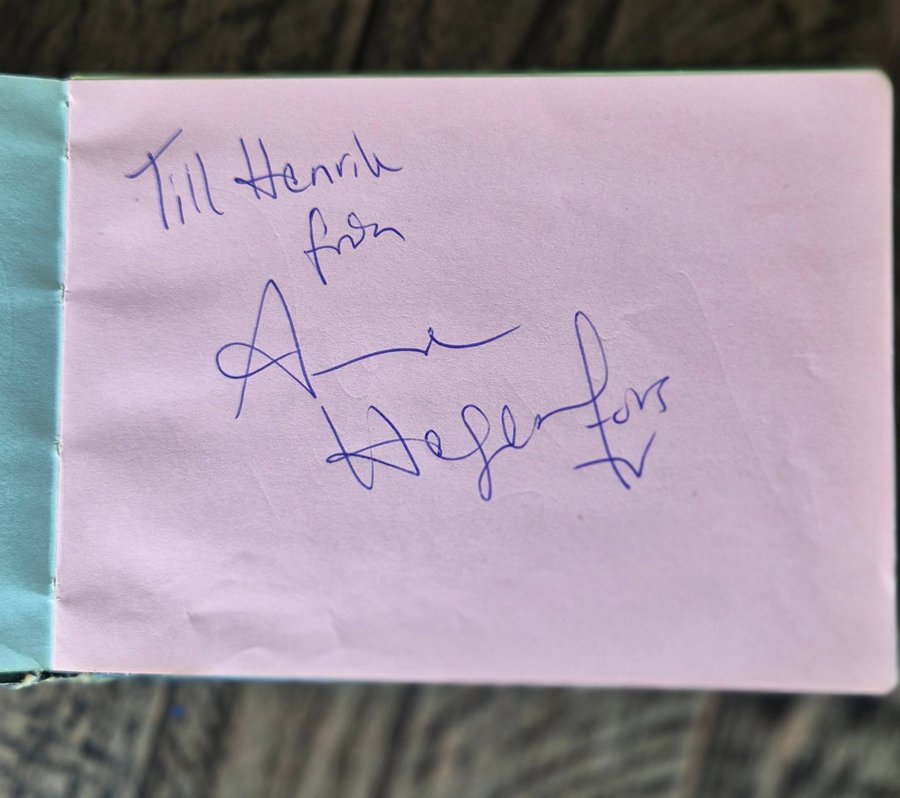 Till Henrik
från
Arne
Hegerfors
TV